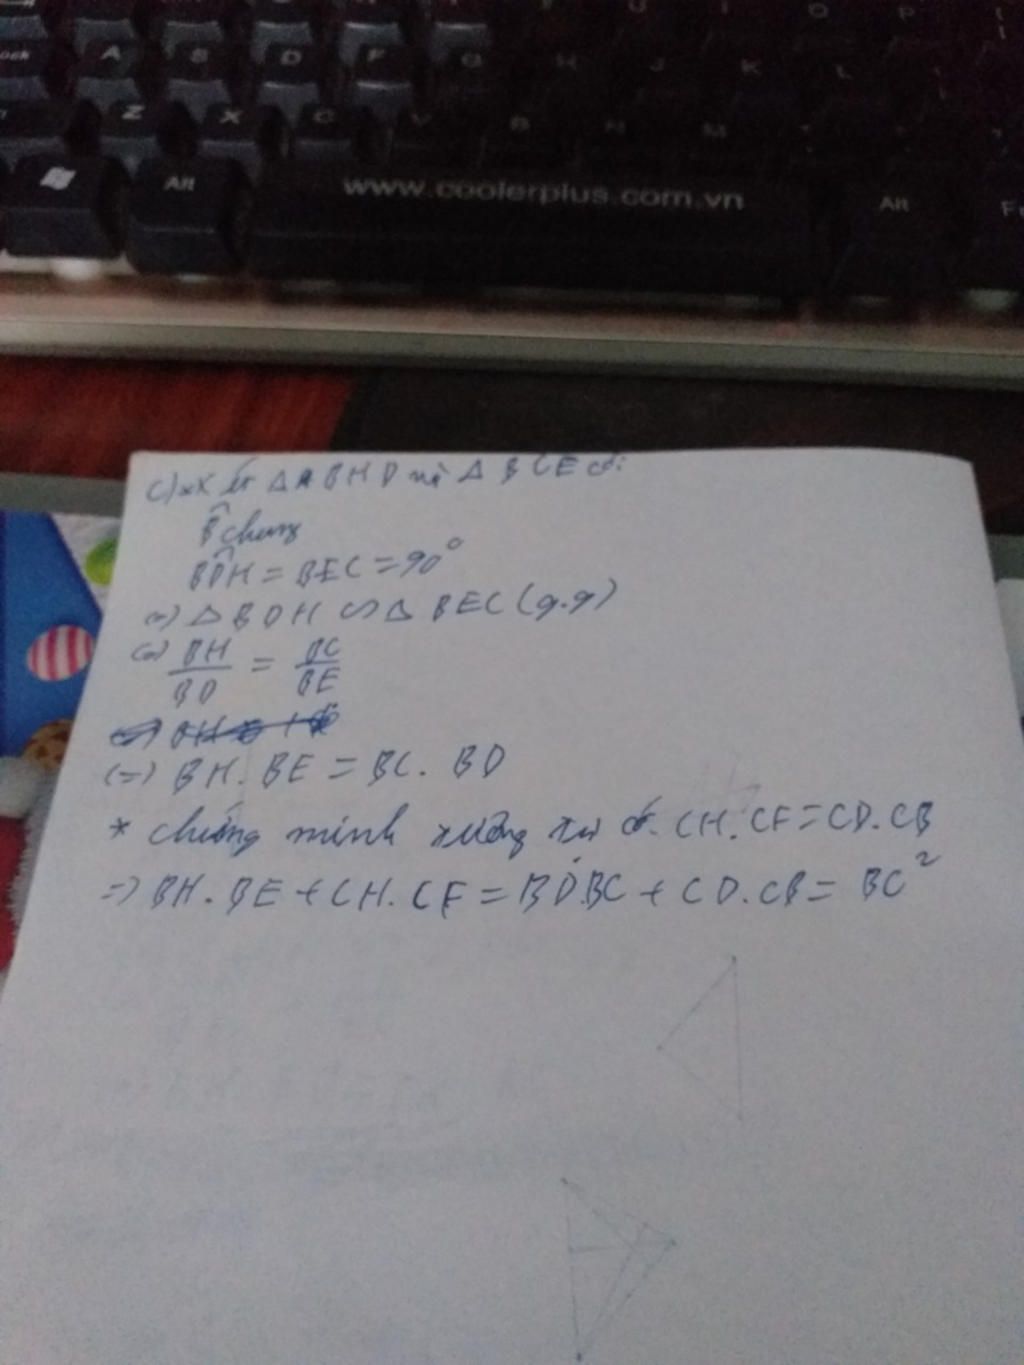 Lock A S D F G H J K L
Z X C V B N M
Alt www.coolerplus.com.vn Alt
c) * Xét Δ BHD và Δ BCE có:
B̂ chung
BDH = BEC = 90°
=) Δ BDH ∽ Δ BEC (g.g)
(=) BH/BD = BC/BE
(=) BH. BE = BC. BD
* chứng minh tương tự có. CH. CF = CD. CB
=) BH. BE + CH. CF = BD.BC + CD. CB = BC²